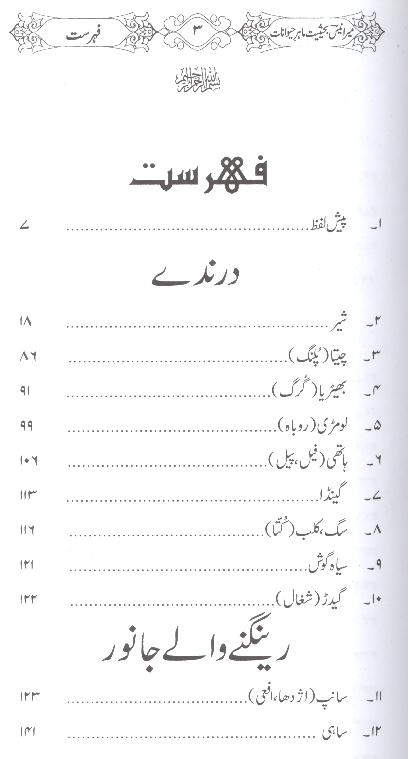 میر انیس بحیثیت ماہر حیوانات ۳ فہرست
بسم اللہ الرحمن الرحیم
فہرست
۱۔ پیش لفظ ........................ ۷
درندے
۲۔ شیر ........................ ۱۸
۳۔ چیتا (پلنگ) ........................ ۸۶
۴۔ بھیڑیا (گُرگ) ........................ ۹۱
۵۔ لومڑی (روباہ) ........................ ۹۹
۶۔ ہاتھی (فیل، پیل) ........................ ۱۰۶
۷۔ گینڈا ........................ ۱۱۳
۸۔ سگ، کلب (کُتّا) ........................ ۱۱۶
۹۔ سیاہ گوش ........................ ۱۲۱
۱۰۔ گیدڑ (شغال) ........................ ۱۲۲
رینگنے والے جانور
۱۱۔ سانپ (اژدھا، افعی) ........................ ۱۲۳
۱۲۔ ساہی ........................ ۱۴۱